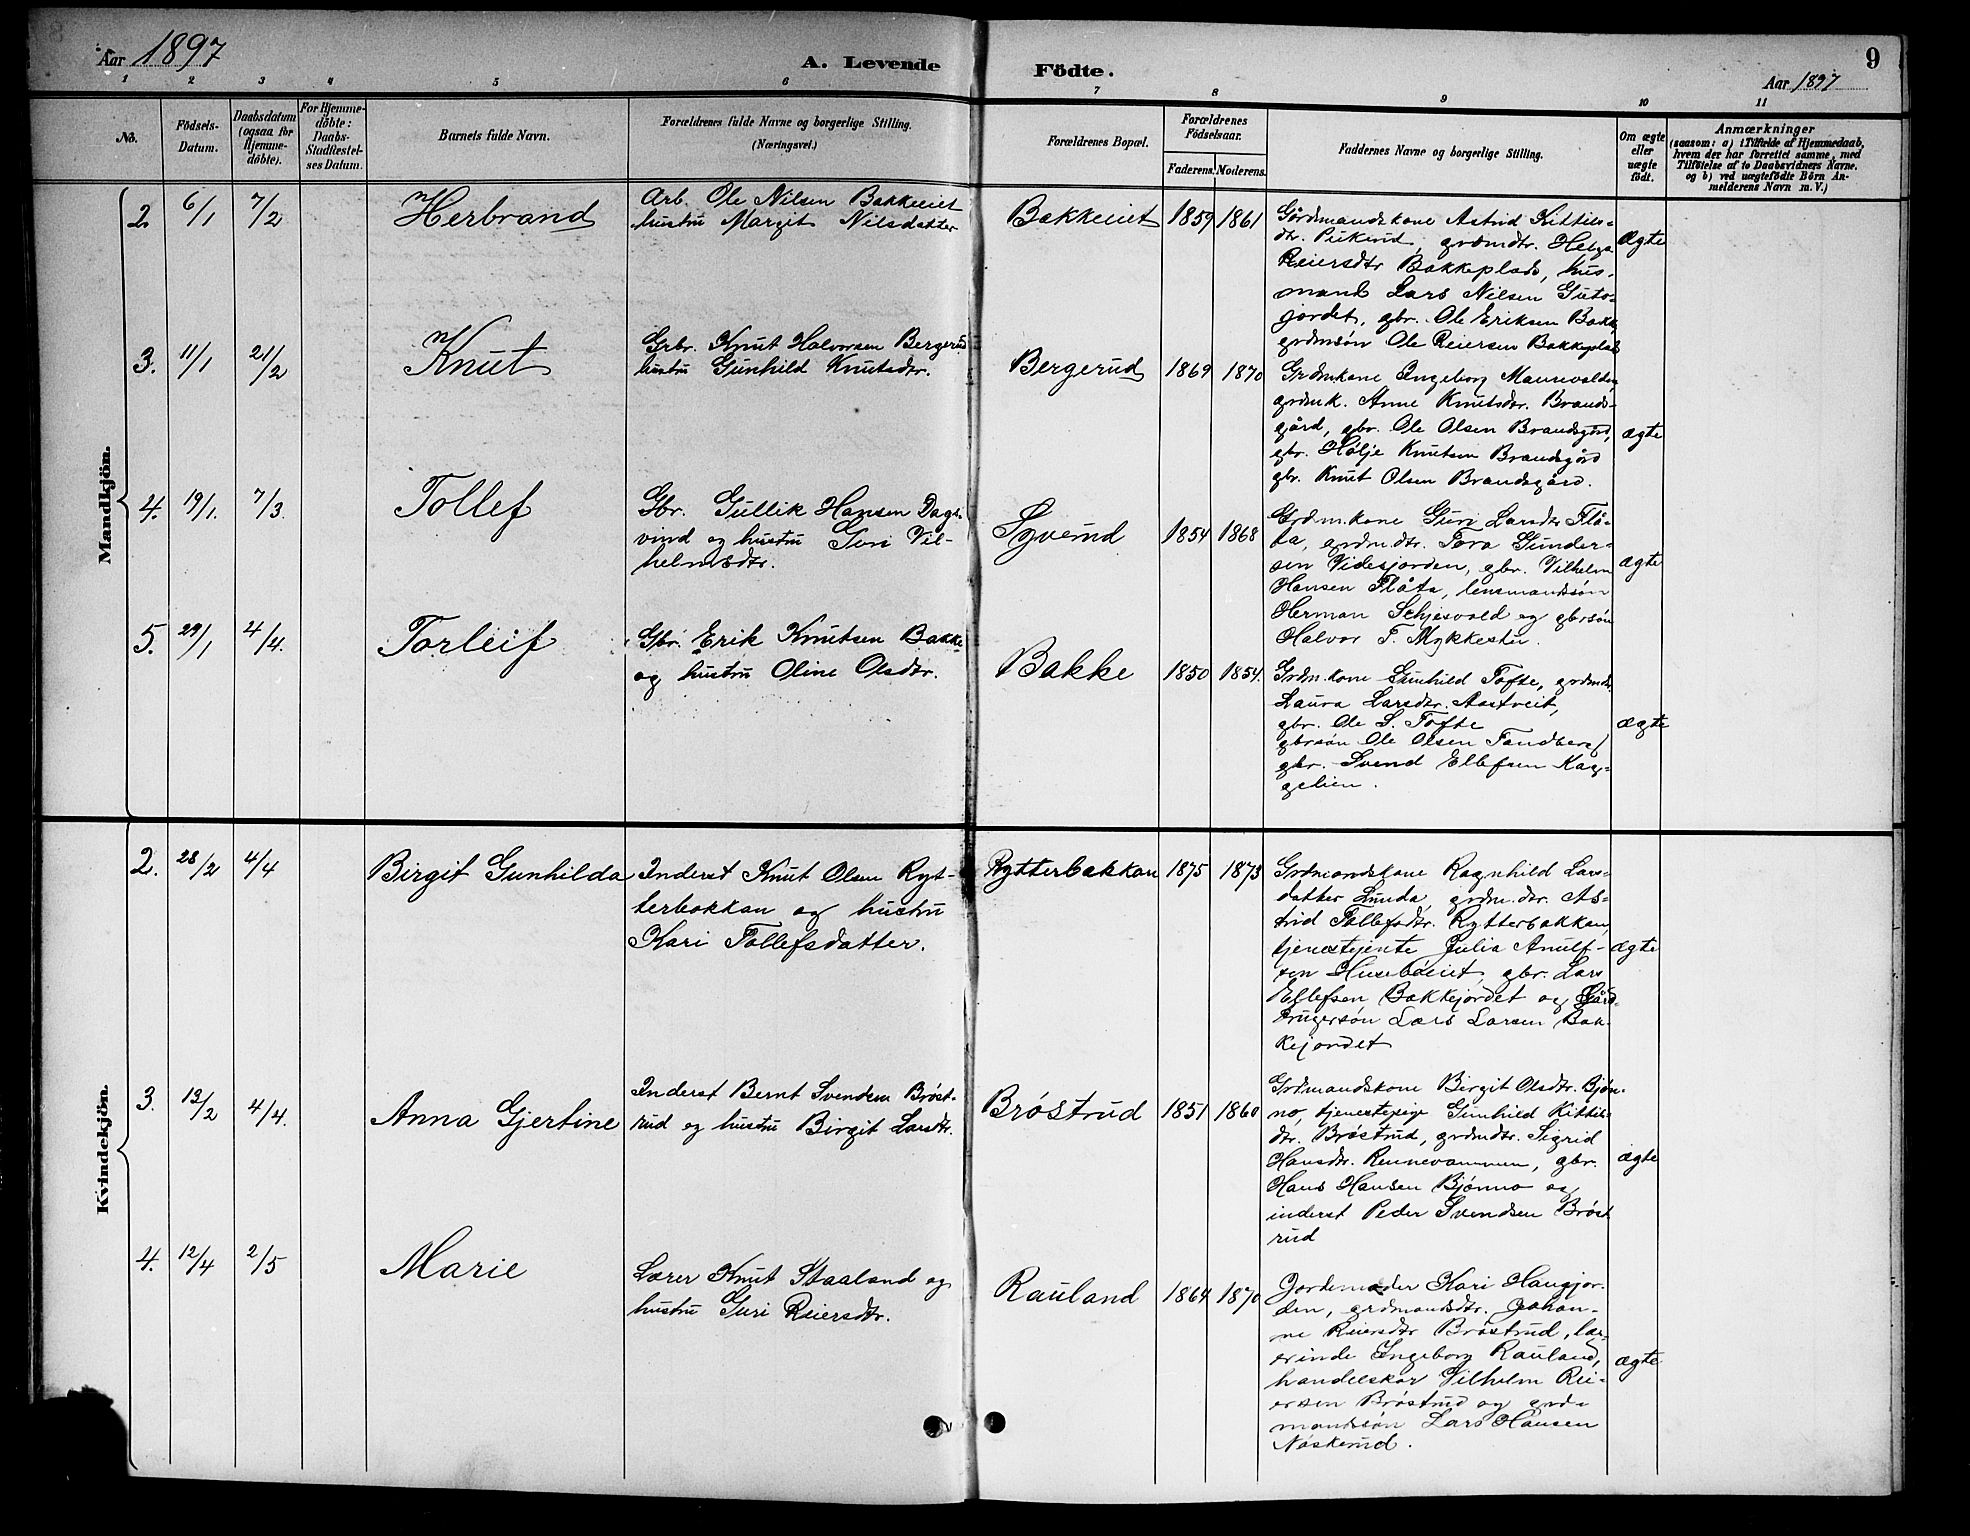 Aar 1897
A. Levende
Födte.
9
Aar 1897
1 2 3 4 5 6 7 8 9 10 11
No.
Födsels-
Datum.
Daabsdatum
(ogsaa for
Hjemme-
döbte).
For Hjemme-
döbte:
Daabs-
Stadfæstel-
ses Datum.
Barnets fulde Navn.
Forældrenes fulde Navne og borgerlige Stilling.
(Næringsvei.)
Forældrenes Bopæl.
Forældrenes
Födselsaar.
Faderens. Moderens.
Faddernes Navne og borgerlige Stilling.
Om ægte
eller
uægte
födt.
Anmærkninger
(saasom: a) i Tilfælde af Hjemmedaab,
hvem der har forrettet samme, med
Tilföielse af to Daabsvidners Navne.
og b) ved uægtefödte Börn An-
melderens Navn m.V.)
Mandkjön.
2. 6/1 7/2 Herbrand
Arb. Ole Nilsen Bakkeeiet
hustru Margit Nilsdatter
Bakkeeiet 1859 1861
Gårdmandskone Astrid Kittils-
dtr. , grdmdtr. Helga
Reiersdtr Bakkeplads, hus-
mand Lars Nilsen
jordet, gbr. Ole Eriksen Bakke
grdmsön Ole Reiersen Bakkeplads
ægte
3. 11/1 21/2 Knut
Grbr. Knut Halvorsen Bergerud
hustru Gunhild Knutsdtr.
Bergerud 1869 1870
Grdm.kone Ingeborg
grdmk. Anne Knutsdtr. Brands-
gård, gbr. Ole Olsen Brandsgård,
gbr. Hölje Knutsen Brandsgård
gbr. Knut Olsen Brandsgård.
ægte
4. 19/1. 7/3. Tollef
Gbr. Gullik Hansen Dags-
vind og hustru Guri Vil-
helmsdtr.
Syverud 1854 1868
Grdm.kone Guri Larsdtr Flå-
ta, grdm.dtr. Tora Gunder-
sen Videsjorden, gbr. Vilhelm
Hansen Flåta, lensmandsön
Herman Schjesvold og gbrsön
Halvor T. Mykkestu.
ægte
5. 29/1 4/4. Torleif
Gbr. Erik Knutsen Bakke
og hustru Oline Olsdtr.
Bakke 1850 1854.
Grdm.kone Gunhild Tofte, grdmdtr.
Laura Larsdtr. Aastveit,
gbr. Ole S. Tofte
gbrsön Ole Olsen Tandberg
gbr. Svend Ellefsen Kag-
gelien.
ægte
Kvindekjön.
2. 28/2 4/4 Birgit Gunhilda
Inderst Knut Olsen Ryt-
terbakkan og hustru
Kari Tollefsdatter.
Rytterbakkan 1875 1873
Grdmandskone Ragnhild Lars-
datter Lunda, grdm.dtr. As-
trid Tollefsdtr. Rytterbakkan,
tjenestejente Julia Anulf-
sen Husebøeiet, gbr. Lars
Ellefsen Bakkejordet og Gård-
brugersön Lars Larsen Bak-
kejordet
ægte
3. 13/2 4/4. Anna Gjertine
Inderst Bernt Svendsen Bröst-
rud og hustru Birgit Larsdtr.
Bröstrud 1851 1860
Grdmandskone Birgit Olsdtr. Bjön-
nö, tjenestepige Gunhild Kittils-
dtr. Bröstrud, grdmdtr. Sigrid
Hansdtr. Rennevammen, gbr.
Hans Hansen Bjönnö og
inderst Peder Svendsen Bröst
rud
ægte
4. 12/4 2/5 Marie
Lærer Knut Staaland og
hustru Guri Reiersdtr.
Rauland 1864 1870
Jordemoder Kari Haugjor-
den, grdmandsdtr. Johan-
ne Reiersdtr Bröstrud, lær-
erinde Ingeborg Rauland,
handelskar Vilhelm Rei-
ersen Bröstrud og grd-
mandsön Lars Hansen
Nöskerud.
ægte